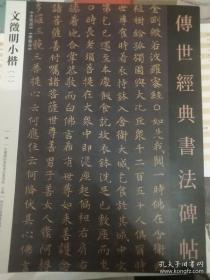 傳世經典書法碑帖
文徵明小楷
(一)
金剛般若波羅蜜經
如是我聞一時佛在舍衛
樹給孤獨園與大比丘眾千二百五十人俱
時世尊食時著衣持鉢入舍衛大城乞食於其
第乞已還至本處飯食訖收衣鉢洗足已敷座
時長老須菩提在大眾中即從座起偏袒右肩
著地合掌恭敬而白佛言希有世尊如來善護
菩薩善付囑諸菩薩世尊善男子善女人發
羅三藐三菩提心云何應住云何降伏其心佛